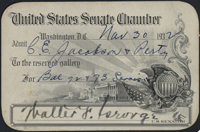 United States Senate Chamber
Washington, D.C. Nov 30 19
Admit
C.E. Jacobson & Party
To the reserved gallery
For
Walter F. George